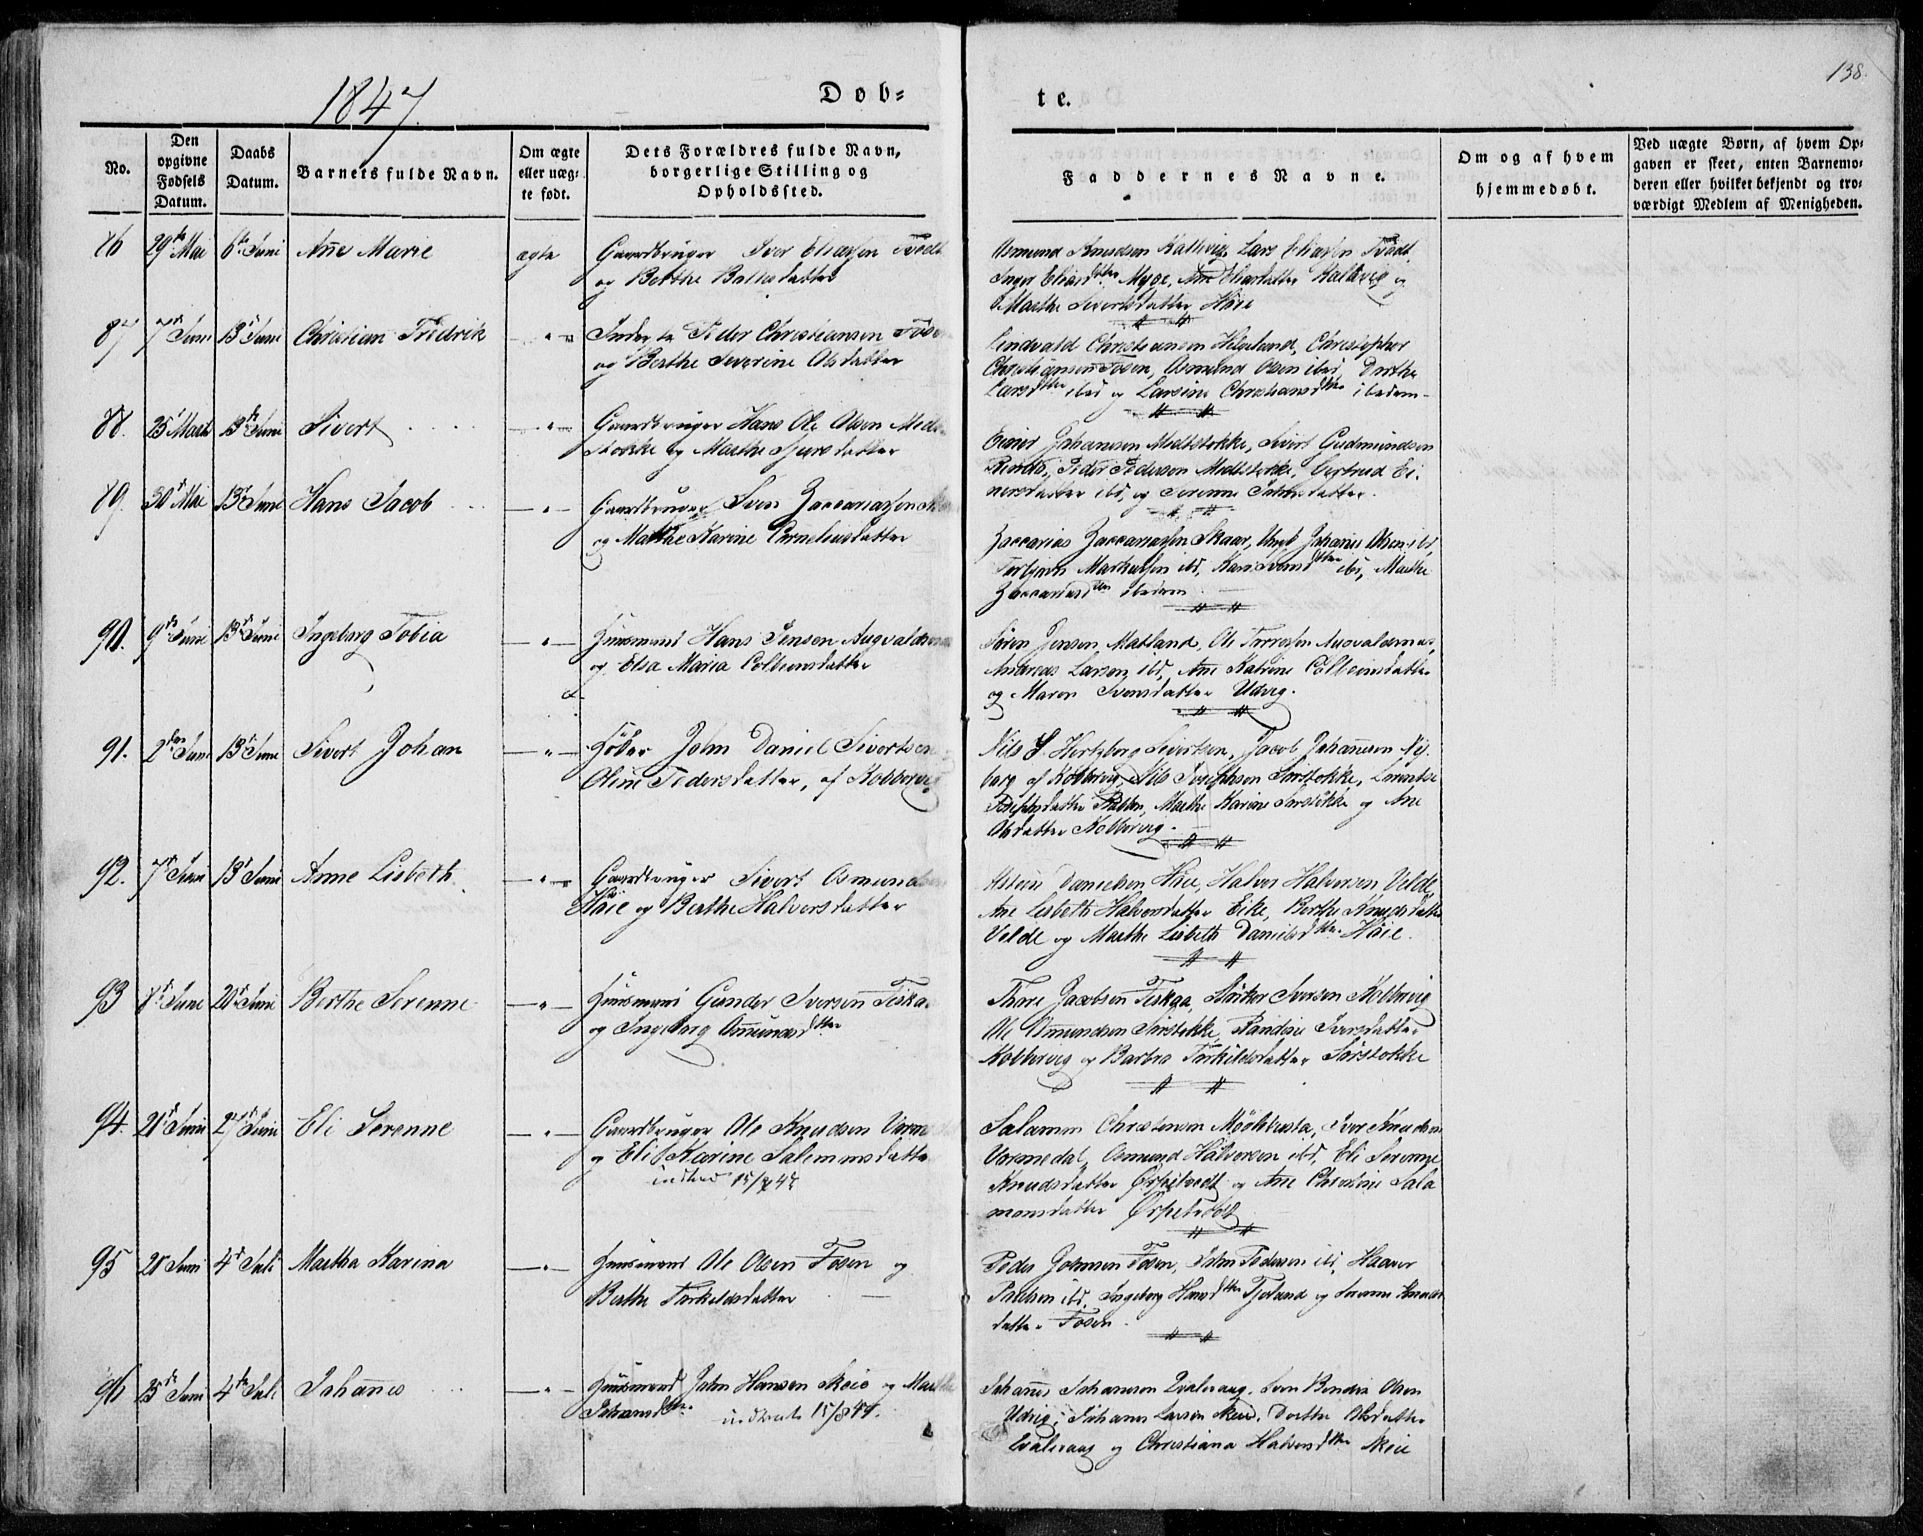 1847.
Døb-
te.
138.
No.
Den opgivne Fødsels Datum.
Daabs Datum.
Barnets fulde Navn.
Om ægte eller uægte født.
Dets Forældres fulde Navn, borgerlige Stilling og Opholdssted.
Faddernes Navne.
Om og af hvem hjemmedøbt.
Ved uægte Børn, af hvem Opgaven er skeet, enten Barnemoderen eller hvilket bekjendt og troværdigt Medlem af Menigheden.
86 29de Mai 6te Juni Ane Marie ægte Gaardbruger Iver Eliassen Tvedt
og Berthe Baltsdatter
Osmund Knudsen Kallevig, Lars Eliassen Tvedt
Inger Eliasdtter Myge, Ane Eliasdatter Kallevig og
Marthe Sivertsdatter Håie
87 7d Juni 13d Juni Christian Fredrik — " — Inderste Peder Christiansen Fosen
og Berthe Severine Olsdatter
Lindvald Christiansen Helgeland, Christopher
Christiansen Fosen, Osmund Olsen ibid, Dorthe
Larsdtter ibid og Larsine Christiansdtter ibidem
88. 25 Marts 13de Juni Sivert — " — Gaardbruger Hans Ole Olsen Medt-
stokke og Marthe Sjursdatter
Einer Johansen Medtstokke, Sivert Gudmundsen
Peder Pedersen Medtstokke, Gertrud Ei-
nersdatter ibd, og Serenne Johnsdatter.
89. 30d Mai 13d Juni Hans Jacob — " — Gaardbruger Sven Zaccariassen
og Marthe Karine Corneliusdatter
Zaccarias Zaccariassen Skaar, Ungk Johanes Olsen ibd,
Torbjørn Markussen ibd, Kari Svensdtter ibd, Marthe
Zaccariasdtter ibidem
90. 9de Juni 13d Juni Ingeborg Tobia — " — Huusmand Hans Jensen Augvaldsnes
og Elsa Maria Colbensdatter
Søren Jensen Matland, Ole Augvaldsnes,
Andreas Larsen ibd, Ane Katrine Colbeinsdatter
og Maren Svensdatter Udvig.
91. 2den Juni 13d Juni Sivert Johan — " — John Daniel Sivertsen
Oline Pedersdatter, af Kobbervig
Nils S. Hertzberg Sivertsen, Jacob Johannesen Ny-
berg af Kobbervig, Nils Josephsen Sørstokke, Lorentse
Marthe Karine Sørstokke og Ane
Olsdatter Kobbervig.
92. 7d Juni 13d Juni Anne Lisbeth — " — Gaardbruger Sivert Osmundsen
Håie og Berthe Halvorsdatter
Danielsen Håie, Halvor Halvorsen Velde,
Ane Lisbeth Halvorsdatter Eike, Berthe Knudsdatter
Velde og Marthe Lisbeth Danielsdtter Håie.
93 8d Juni 20d Juni Berthe Serenne — " — Huusmand Gunder Iversen Fiskaa
og Ingeborg Omundsdtter
Thore Jacobsen Fiskaa, Størker Iversen Kobbervig
Ole Omundsen Sørstokke, Randine Iversdatter
Kobbervig og Barbra Torkildsdatter Sørstokke
94. 21d Juni 27d Juni Eli Serenne — " — Gaardbruger Ole Knudsen Vorme
og Eli Karine Salemonsdatter
15/8 47
Salamon Christensen Møglebusta, Iver Knudsen
Vormedal, Osmund Halvorsen ibd, Eli Serenne
Knudsdatter Ørpetvedt og Ane Christine Sala
monsdatter Ørpetvedt
95 20 Juni 4d Juli Martha Karina — " — Huusmand Ole Olsen Fosen og
Berthe Torkeldsdatter
Peder Johnsen Fosen, John Pedersen ibd, Haaver
Paulsen ibd, Ingeborg Hansdtter Fjelund og Serenne Knuds
datter Fosen.
96 15de Juni 4de Juli Johannes — " — Huusmand John Hansen Skeie og Marthe
Johansdtter. 15/8 47.
Johannes Johannesen Qvalevaag, Sven Bendix Olsen
Udvig, Johannes Larsen Skeie, Dorthe Olsdatter
Qvalevaag og Christiana Halvorsdtter Skeie